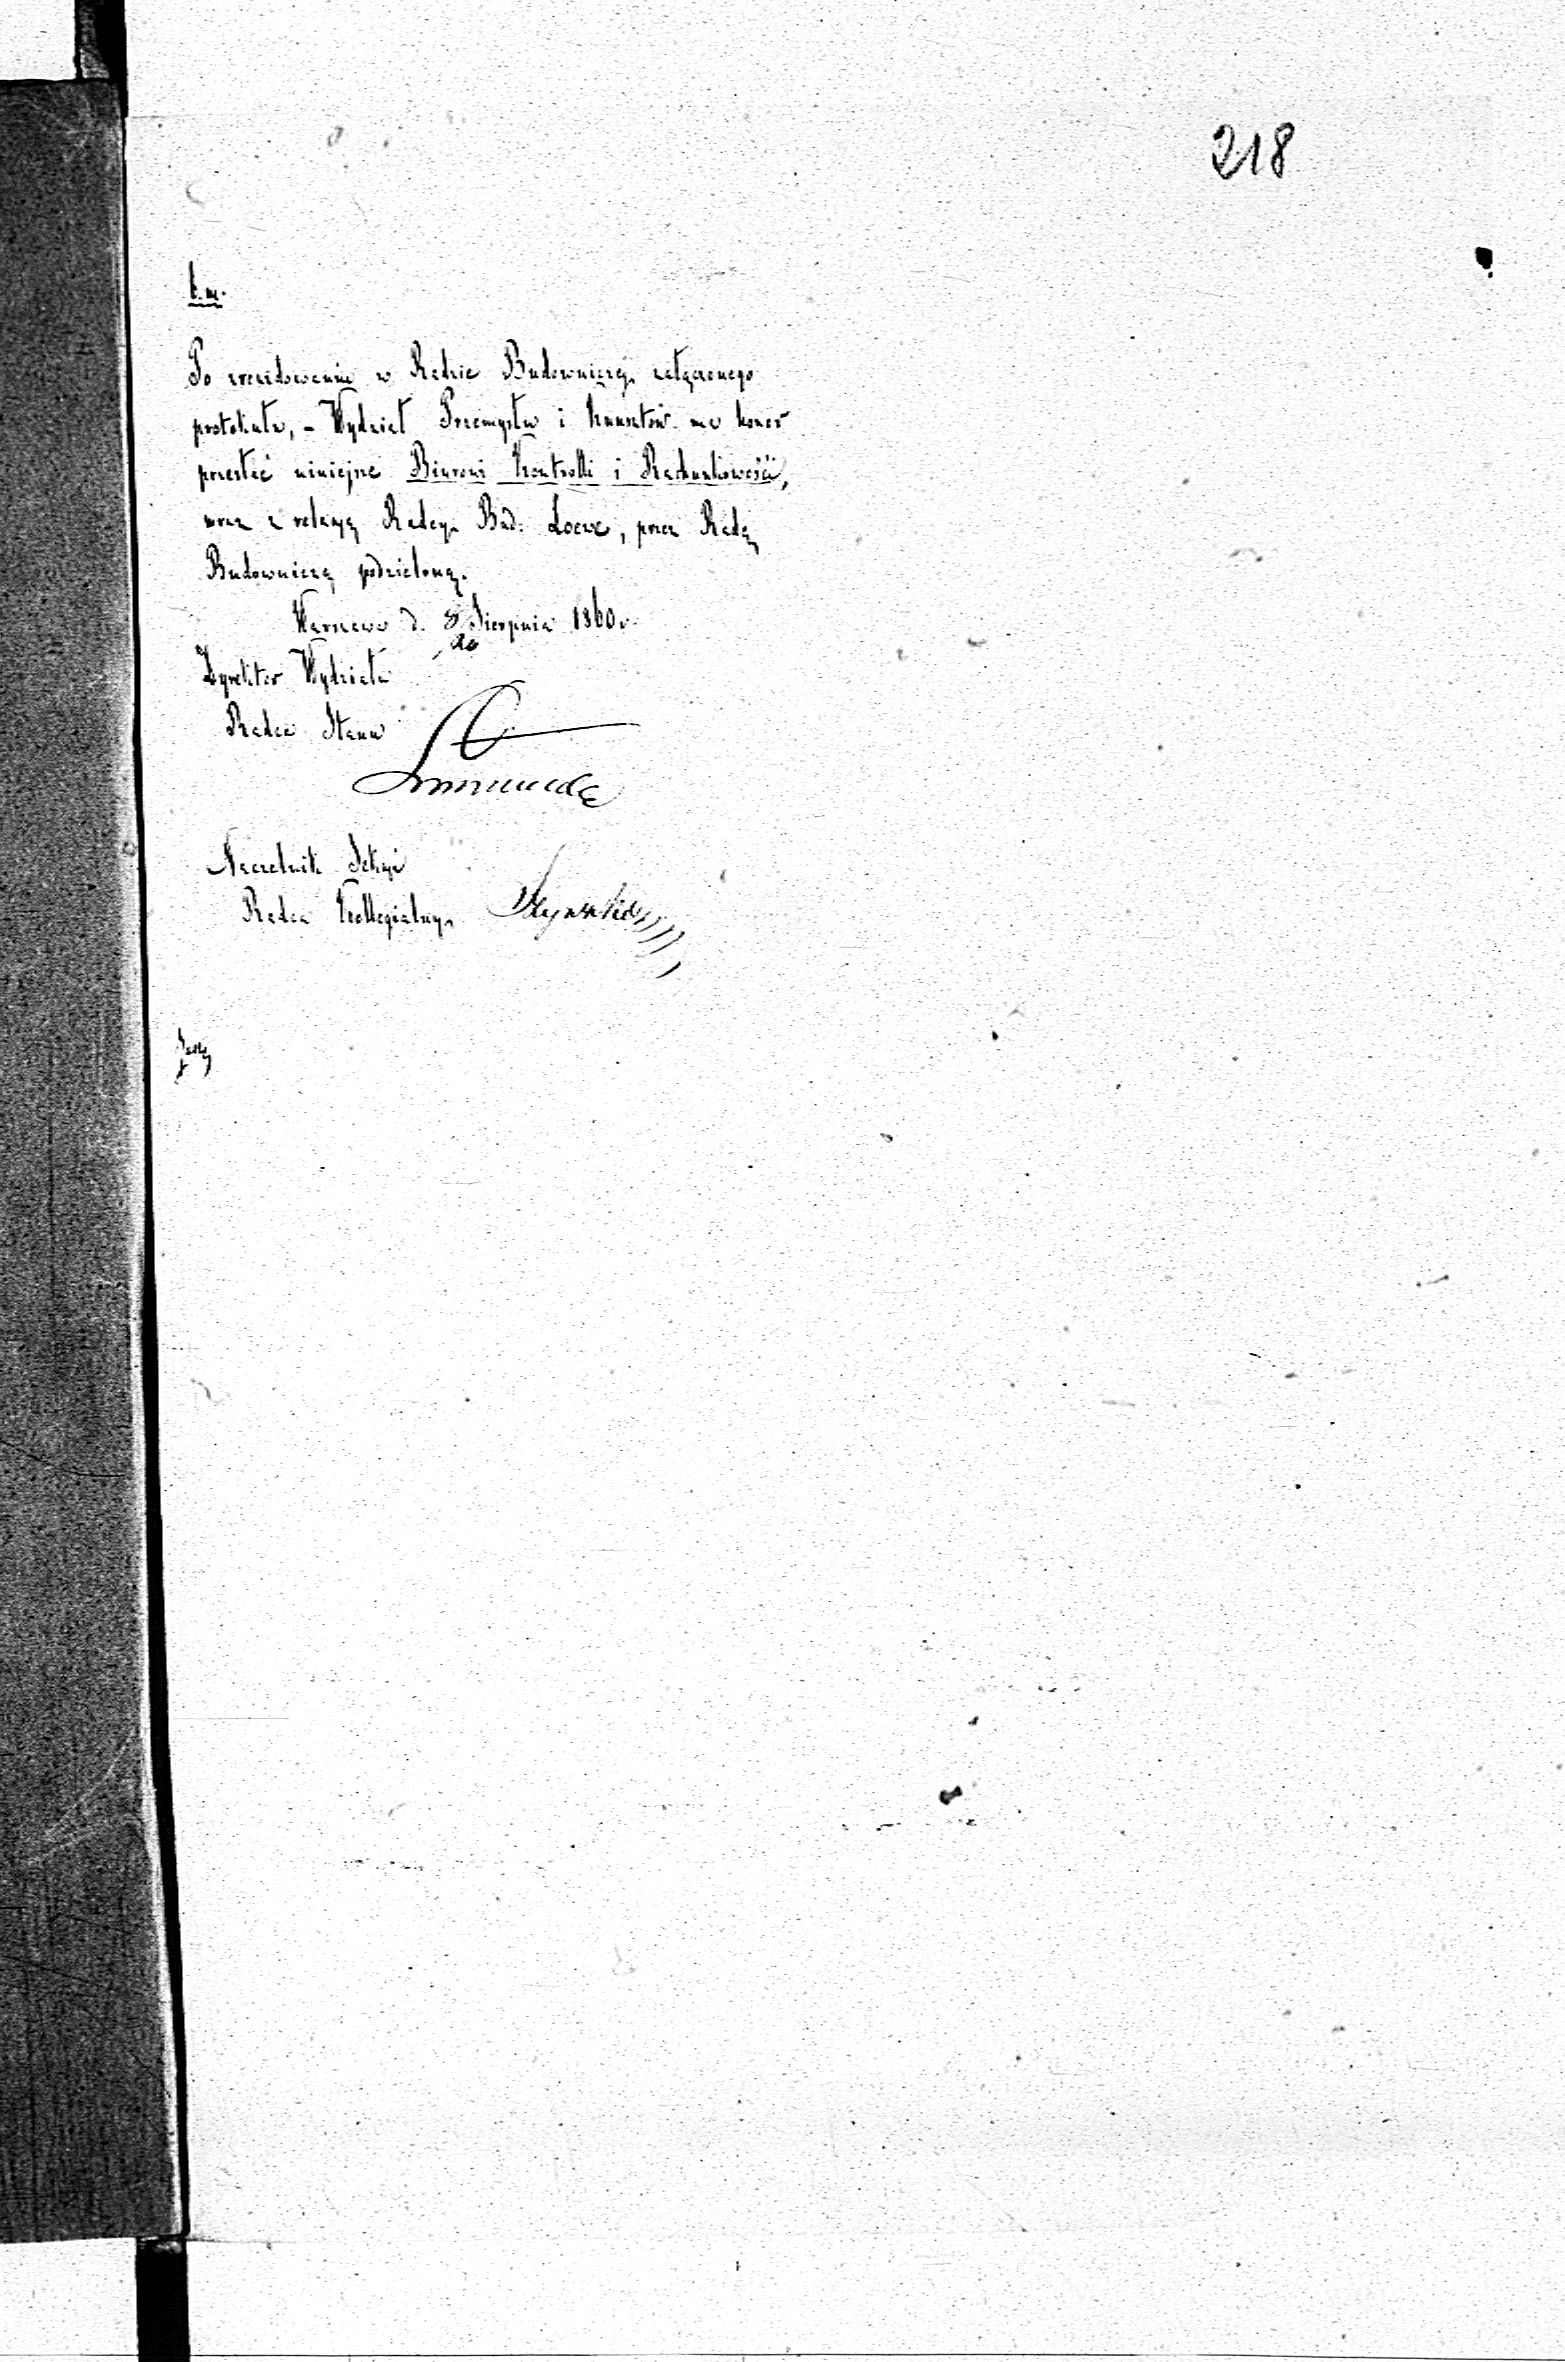 218
b. m.
Po zrewidowaniu w Radzie Budowniczéj załączonego
protokułu, – Wydział Przemysłu i Kunsztów ma honor
przesłać niniejsze Biurowi Kontrolli i Rachunkowości,
wraz z relacyą Radcy Bud: Loewe, przez Radę
Budowniczą podzieloną.
Warszawa d. 8/20 Sierpnia 1860 r.
Dyrektor Wydziału
Radca Stanu
Naczelnik Sekcyi
Radca Kollegialny